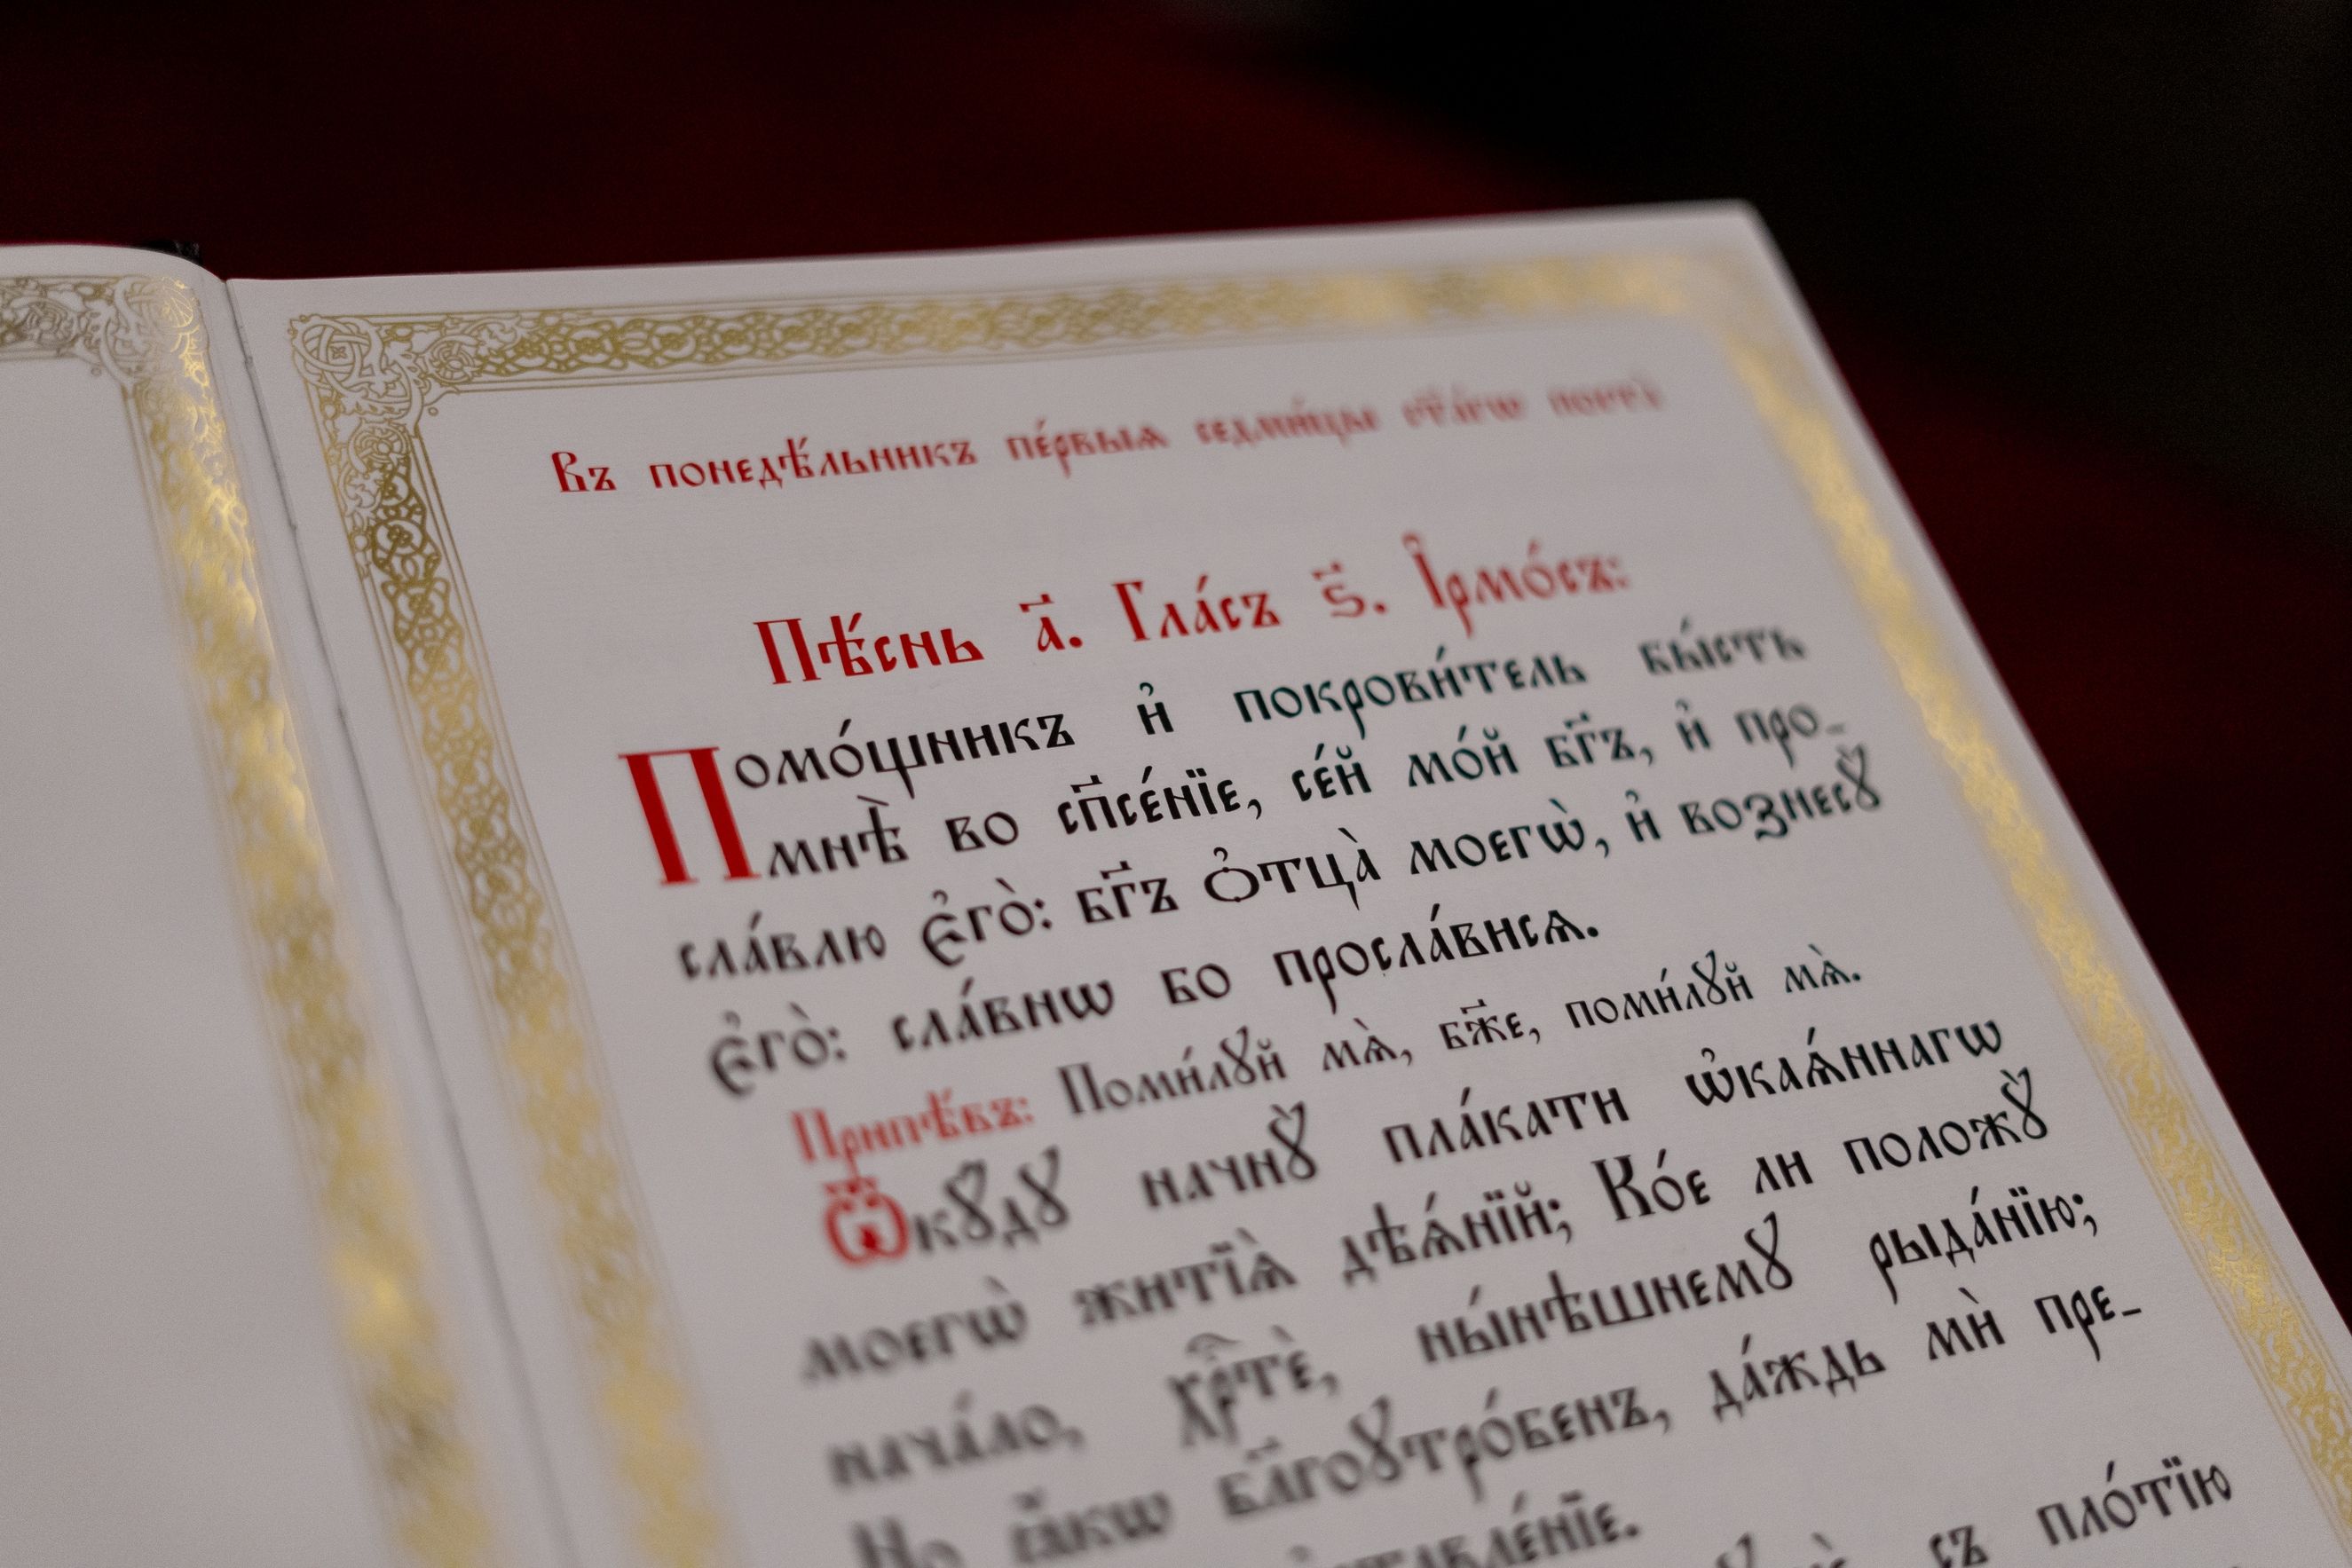 Въ понедѣ́льникъ пе́рвыѧ седми́цы ст҃а́гѡ поста̀
Пѣ́снь а҃. Гла́съ ѕ҃. І҆рмо́съ:
Помо́щникъ и҆ покрови́тель бы́сть
мнѣ̀ во сп҃се́нїе, се́й мо́й бг҃ъ, и҆ про-
сла́влю є҆го̀: бг҃ъ ѻ҆тца̀ моегѡ̀, и҆ вознесꙋ̀
є҆го̀: сла́внѡ бо просла́висѧ.
Припѣ́въ: Поми́лꙋй мѧ̀, бж҃е, поми́лꙋй мѧ̀.
Ѿкꙋ́дꙋ начнꙋ̀ пла́кати ѡ҆каѧ́ннагѡ
моегѡ̀ житїѧ̀ дѣѧ́нїй; Ко́е ли положꙋ̀
нача́ло, хрⷭ҇тѐ, ны́нѣшнемꙋ рыда́нїю;
Но ꙗ҆́кѡ бл҃гоꙋтро́бенъ, да́ждь мѝ пре-
съ пло́тїю